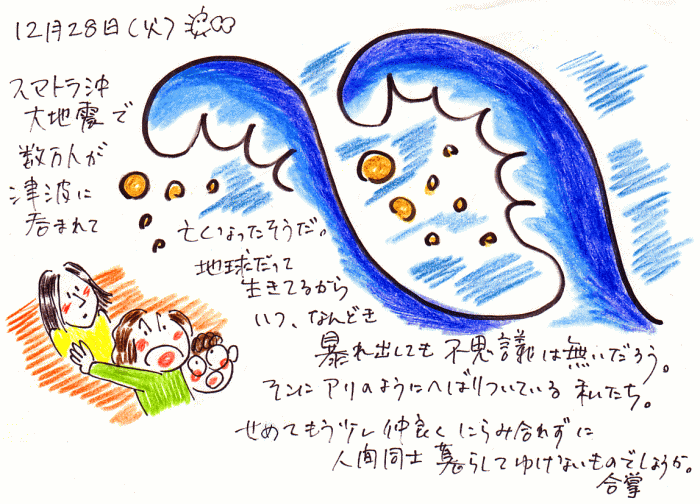 12月28日(火)
スマトラ沖
大地震で
数万人が
津波に
呑まれて
亡くなったそうだ。
地球だって
生きてるから
いつ、なんどき
暴れ出しても不思議は無いだろう。
そこにアリのようにへばりついている私たち。
せめてもう少し仲良くにらみ合わずに
人間同士暮らしてゆけないものでしょうか。
合掌